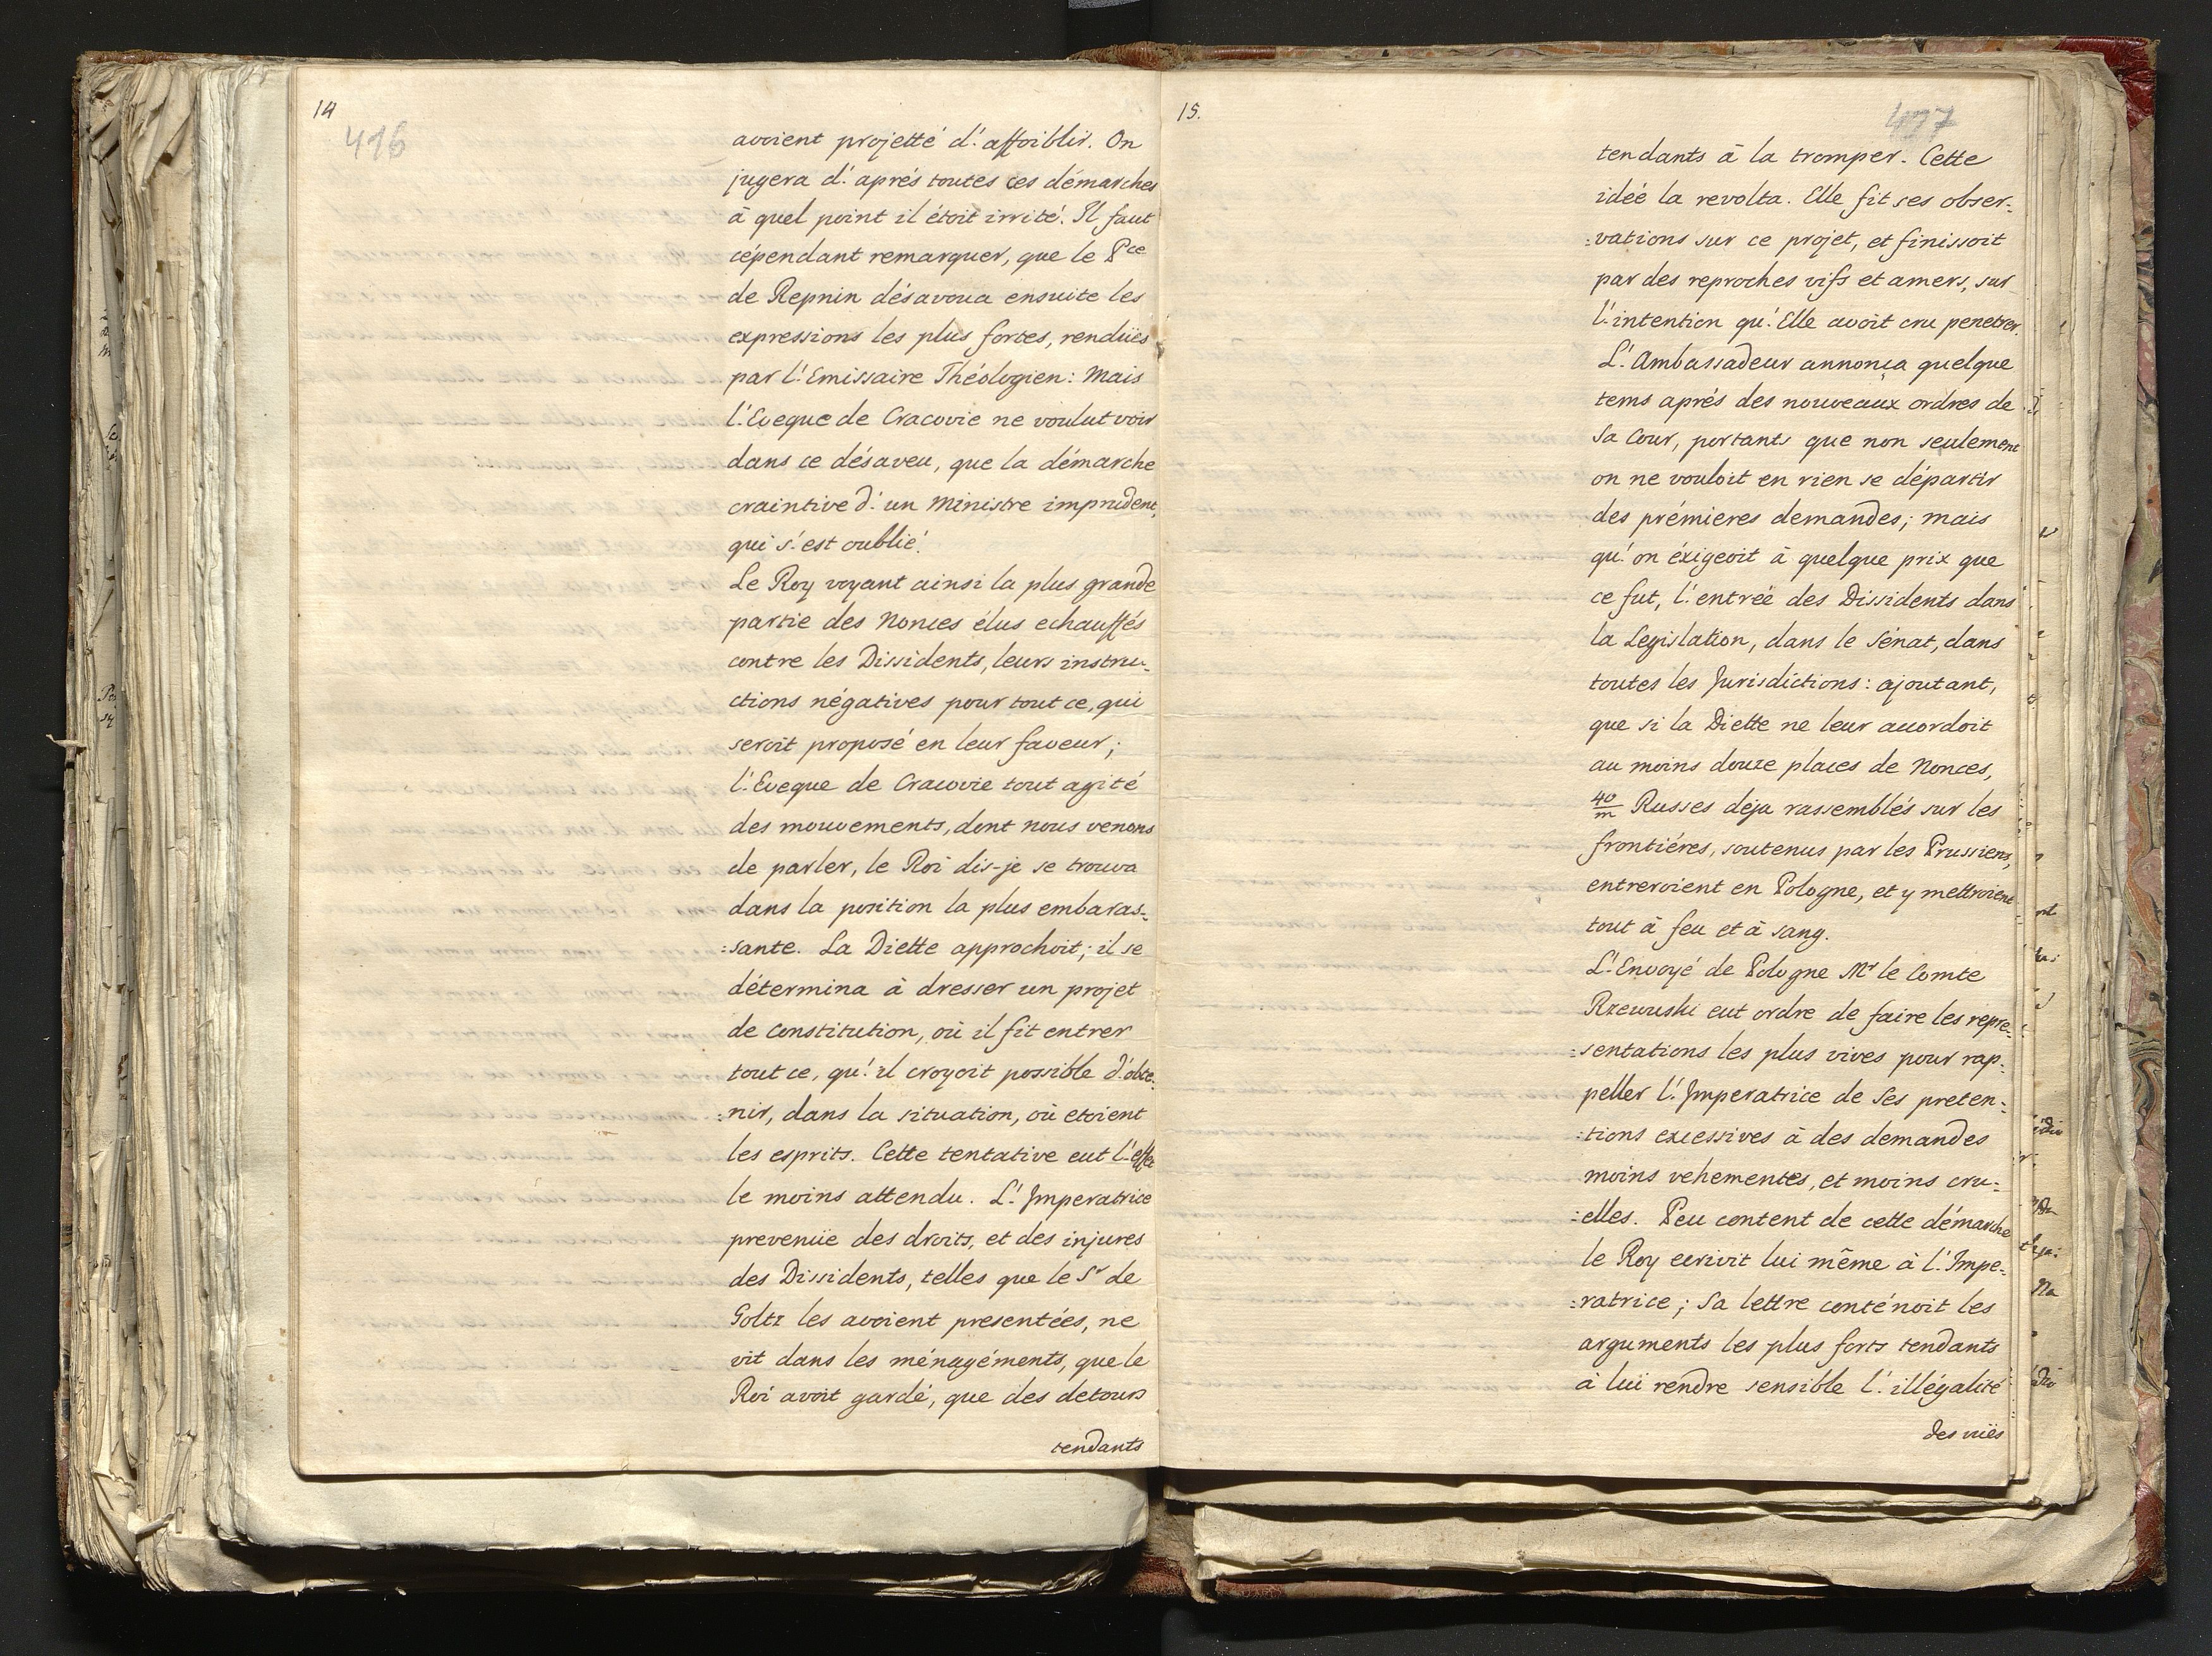 14
416
avoient projetté d'affoiblir. On
jugera d'aprés toutes ces démarches
à quel point il étoit irrité. Il faut
cépendant remarquer, que le Pce
de Repnin désavoua ensuite les
expressions les plus fortes, rendües
par l'Emissaire Théologien: Mais
l'Eveque de Cracovie ne voulut voir
dans ce désaveu, que la démarche
craintive d'un Ministre imprudent,
qui s'est oublié.
Le Roy voyant ainsi la plus grande
partie des Nonces élus echauffés
contre les Dissidents, leurs instru-
ctions négatives pour tout ce, qui
seroit proposé en leur faveur;
l'Eveque de Cracovie tout agité
des mouvements, dont nous venons
de parler, le Roi dis-je se trouva
dans la position la plus embaras-
:sante. La Diette approchoit; il se
détermina à dresser un projet
de Constitution, où il fit entrer
tout ce, qu'il croyoit possible d'obte-
:nir, dans la situation, où etoient
les esprits. Cette tentative eut l'effet
le moins attendu. L'Imperatrice
prevenüe des droits, et des injures
des Dissidents, telles que le Sr de
Goltz les avoient presentées, ne
vit dans les ménagéments, que le
Roi avoit gardé, que des detours
tendants
15.
437
tendants à la tromper. Cette
idéé la revolta. Elle fit ses obser-
:vations sur ce projet, et finissoit
par des reproches vifs et amers, sur
l'intention qu'Elle avoit cru penetrer.
L'Ambassadeur annonça quelque
tems aprés des nouveaux ordres de
Sa Cour, portants que non seulement
on ne vouloit en rien se départir
des prémieres demandes; mais
qu'on éxigeoit à quelque prix que
ce fut, l'entréé des Dissidents dans
la Legislation, dans le Sénat, dans
toutes les Jurisdictions: ajoutant,
que si la Diette ne leur accordoit
au moins douze places de Nonces,
40/m Russes déja rassemblés sur les
frontiéres, soutenus par les Prussiens,
entreroient en Pologne, et y mettroient
tout à feu et à sang.
L'Envoyé de Pologne Mr le Comte
Rzewuski eut ordre de faire les repre-
:sentations les plus vives pour rap-
peller l'Imperatrice de Ses preten-
:tions excessives à des demandes
moins vehementes, et moins cru-
:elles. Peu content de cette démarche
le Roy ecrivit lui même à l'Impe-
:ratrice; Sa lettre conténoit les
arguments les plus forts tendants
à lui rendre sensible l'illégalité
des vües